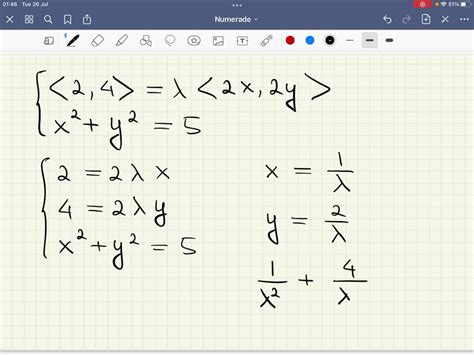 01:46 Tue 26 Jul
51%
Numerade
⟨2, 4⟩ = λ ⟨2x, 2y⟩
x² + y² = 5
2 = 2λ x
4 = 2λ y
x² + y² = 5
x = 1/λ
y = 2/λ
1/λ² + 4/λ